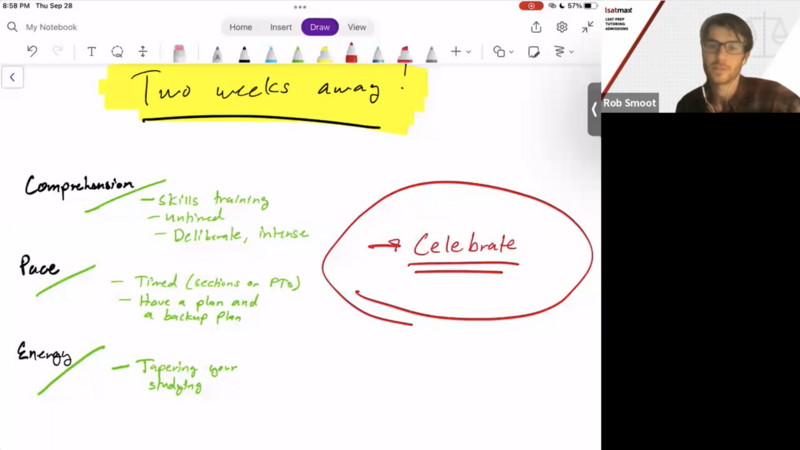 8:58 PM Thu Sep 28
57%
My Notebook
Home Insert Draw View
Two weeks away!
Comprehension
- Skills training
- Untimed
- Deliberate, intense
Pace
- Timed (sections or PTs)
- Have a plan and
a backup plan
Energy
- Tapering your
studying
→ Celebrate
lsatmax
LSAT PREP
TUTORING
ADMISSIONS
Rob Smoot